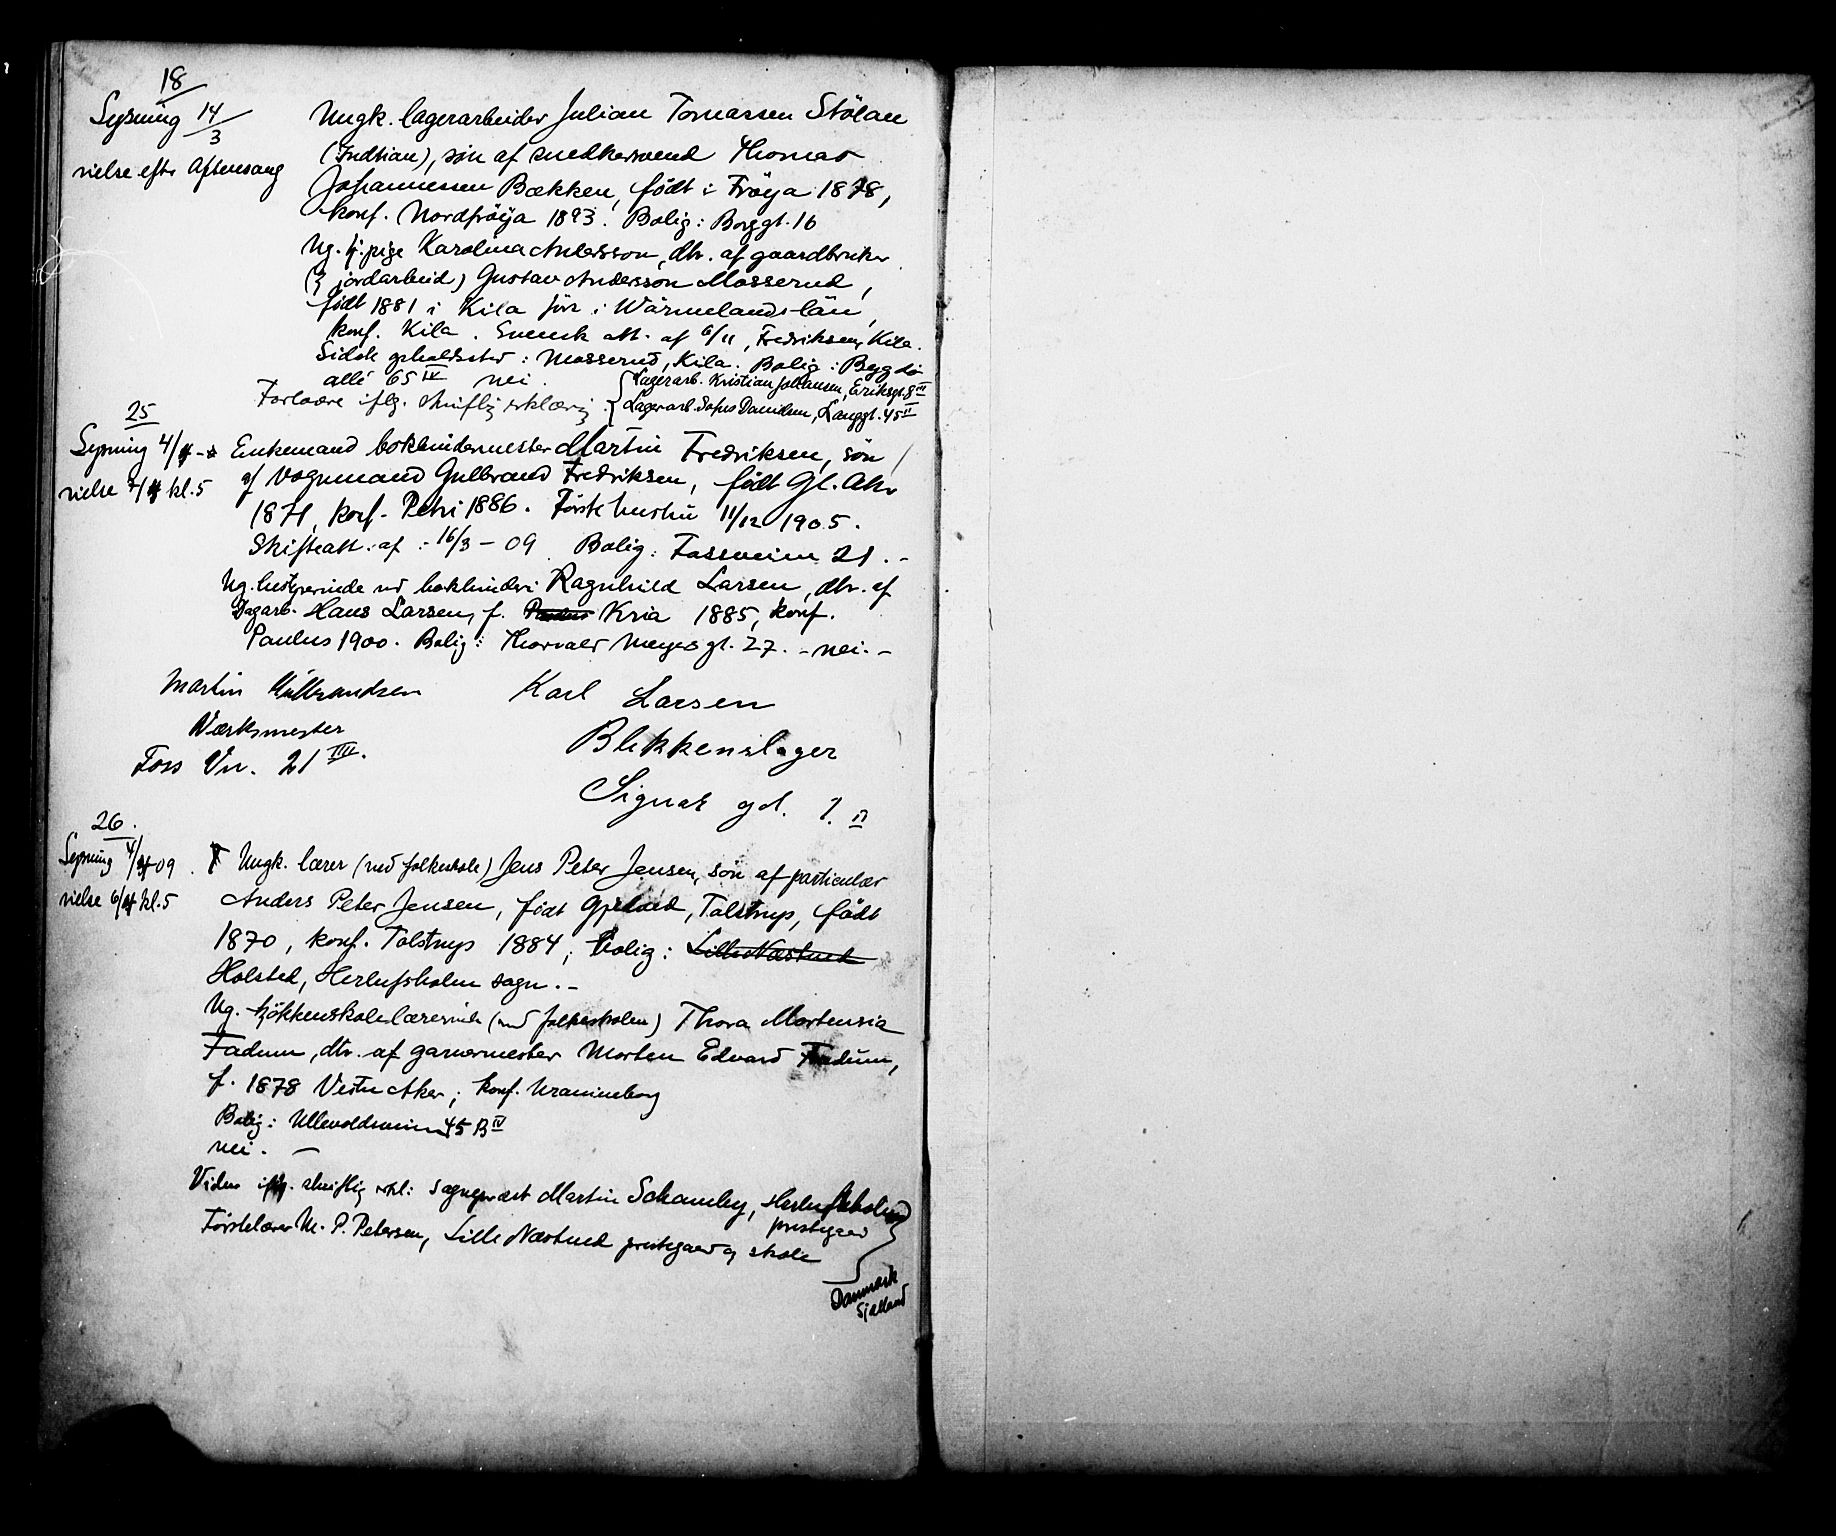 18
Lysning 14/3
vielse efter Aftensang
Ungk. lagerarbeider Julian Tomassen Stölan
søn af snedkersvend Thomas
Johannessen Bækken, født i Fröya 1878,
konf. Nordfröya 1893. Bolig: Borggt. 16
Ug. tj.pige Karolina Andersson, dtr. af gaardbruker
(& jordarbeid) Gustav Andersson Mosserud,
født 1881 i Kila förs. i Wärmelands län,
konf. Kila. Svensk att. af 6/11, Fredriksen, Kila.
Sidste opholdssted: Mosserud, Kila. Bolig: Bygdø
allé 65 IV nei.
Forlovere iflg. skriftlig erklæring
Lagerarb. Kristian Johansen, Eriksgt. 8 III
Lagerarb. Sofus Danielsen, Langgt. 45 II
25
Lysning 4/4
vielse 4/4 kl. 5
Enkemand bokbindermester Martin Fredriksen, søn
af Vognmand Gulbrand Fredriksen, født Gl. Aker
1871, konf. Petri 1886. Første hustru 11/12 1905.
Skifteatt. af 16/3 - 09 Bolig: Fossveien 21. -
Ug. ved bokbinderi Ragnhild Larsen, dtr. af
Dagarb. Hans Larsen, f. Kria 1885, konf.
Paulus 1900. Bolig: Thorvald Meyers gt. 27. - nei. -
Martin Gulbrandsen
Værksmester
Foss Vn. 21 IIII.
Karl Larsen
Blikkenslager
gd. 1. II
26.
Lysning 4/4 09.
vielse 6/4 kl. 5
Ungk. lærer (ved folkeskole) Jens Peter Jensen, søn af particulær
Anders Peter Jensen, født Tolstrup, født
1870, konf. Tolstrup 1884, bolig: Lille Næstved
Holsted, Herlufsholm sogn. -
Ug. kjøkkenskolelærerinde (ved folkeskolen) Thora Mortensia
Fadum, dtr. af garvermester Morten Edvard Fadum,
f. 1878 Vestre Aker; konf. Uranienborg
Bolig: Ullevoldsveien 45 B IV
nei. -
Vidner iflg. skriftlig erkl: Sogneprest Martin Herlufsholm
prestegaard
Førstelærer M. P. Petersen, Lille Næstved prestegaard og skole
Danmark
Sjælland